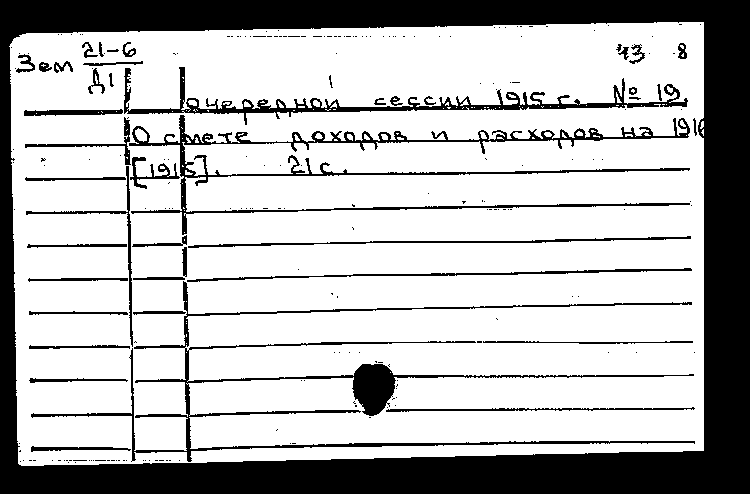 Зем 21-6 43 8
Д1
очередной сессии 1915 г. № 19.
О смете доходов и расходов на 1916
[1915]. 21 с.